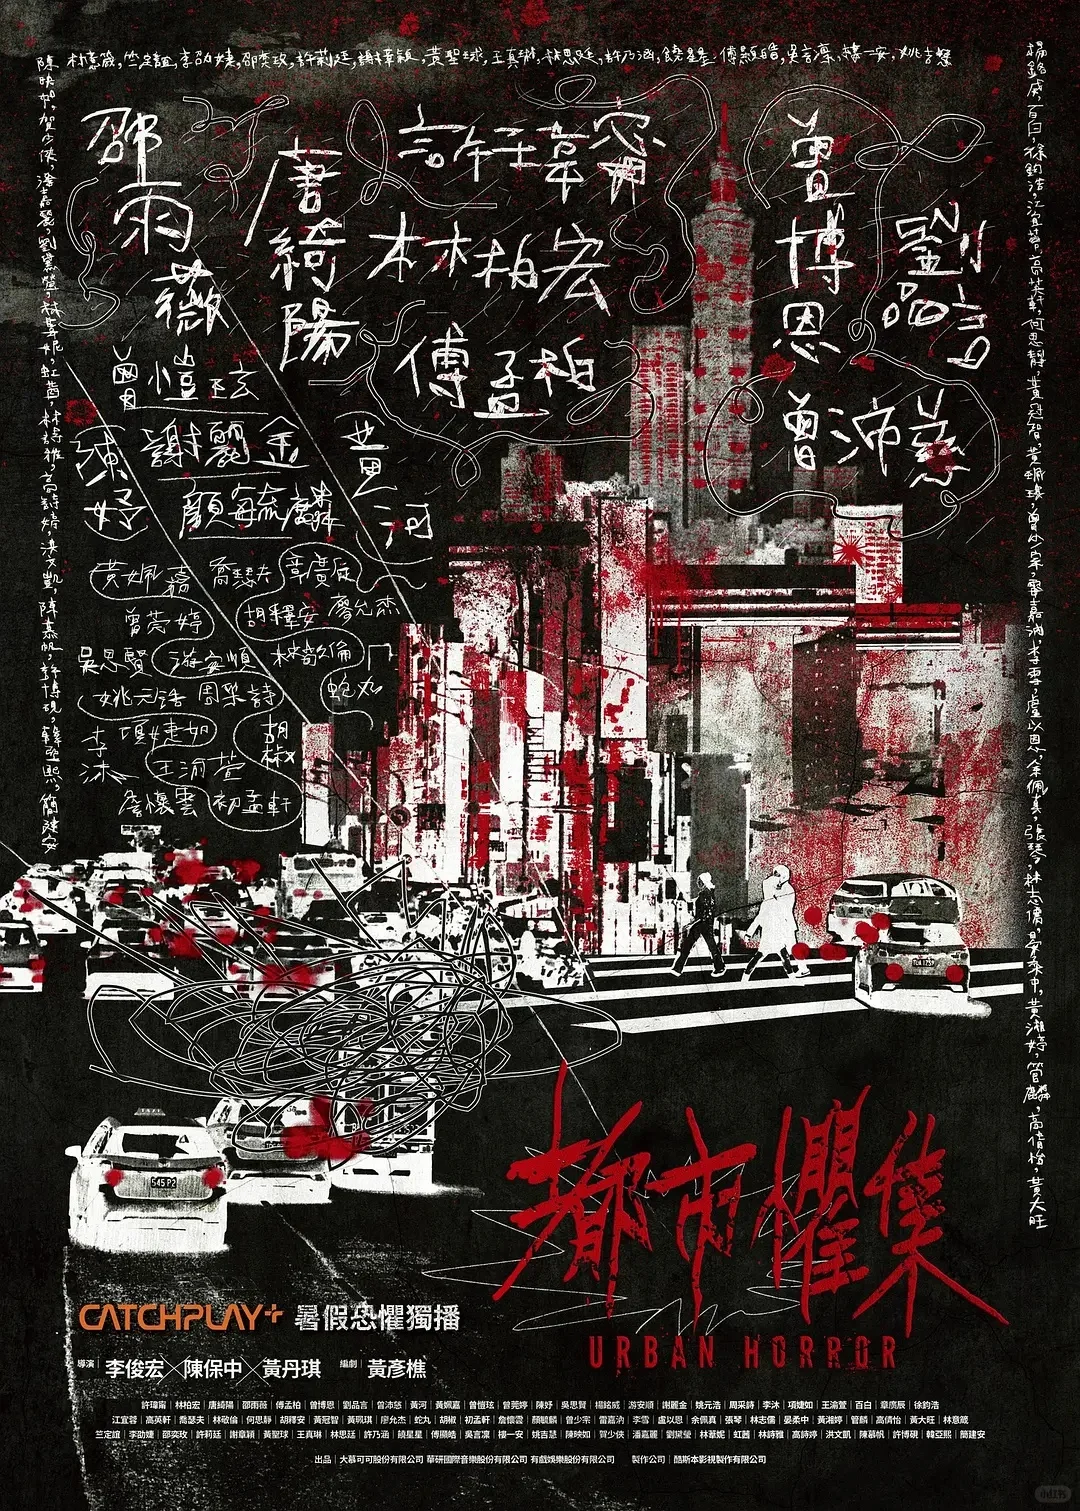 林意箴,竺定誼,李劭婕,邵奕玫,許莉廷,謝章穎,黃聖球,王真琳,林思廷,許乃涵,饒星星,傅顯皓,吳言凜,樓一安,姚吉慧
陳映如,賀少俠,潘嘉麗,劉黛瑩,林葦妮,虹茜,林詩雅,高詩婷,洪文凱,陳慕帆,許博硯,韓亞熙,簡建安
楊銘威,百白,徐鈞浩,江宜蓉,高英軒,何思靜,黃冠智,黃珮琪,曾少宗,雷嘉汭,李雪,盧以恩,余佩真,張琴,林志儒,晏柔中,黃湘婷,管麟,高倩怡,黃大旺
邵雨薇
唐綺陽
許瑋甯
林柏宏
傅孟柏
曾博恩
劉品言
曾沛慈
曾愷玹
陳妤
謝麗金
顏毓麟
黃河
黃姵嘉
喬瑟夫
章廣辰
曾莞婷
胡釋安
廖允杰
吳思賢
游安順
林敬倫
姚元浩
周采詩
蛇丸
李沐
項婕如
胡椒
王渝萱
詹懷雲
初孟軒
TAXI
545 P2
都市懼集
URBAN HORROR
CATCHPLAY+ 暑假恐懼獨播
導演 李俊宏×陳保中×黃丹琪 編劇 黃彥樵
許瑋甯|林柏宏|唐綺陽|邵雨薇|傅孟柏|曾博恩|劉品言|曾沛慈|黃河|黃姵嘉|曾愷玹|曾莞婷|陳妤|吳思賢|楊銘威|游安順|謝麗金|姚元浩|周采詩|李沐|項婕如|王渝萱|百白|章廣辰|徐鈞浩
江宜蓉|高英軒|喬瑟夫|林敬倫|何思靜|胡釋安|黃冠智|黃珮琪|廖允杰|蛇丸|胡椒|初孟軒|詹懷雲|顏毓麟|曾少宗|雷嘉汭|李雪|盧以恩|余佩真|張琴|林志儒|晏柔中|黃湘婷|管麟|高倩怡|黃大旺|林意箴
竺定誼|李劭婕|邵奕玫|許莉廷|謝章穎|黃聖球|王真琳|林思廷|許乃涵|饒星星|傅顯皓|吳言凜|樓一安|姚吉慧|陳映如|賀少俠|潘嘉麗|劉黛瑩|林葦妮|虹茜|林詩雅|高詩婷|洪文凱|陳慕帆|許博硯|韓亞熙|簡建安
出品|大慕可可股份有限公司 華研國際音樂股份有限公司 有戲娛樂股份有限公司 製作公司|酷斯本影視製作有限公司
小红书